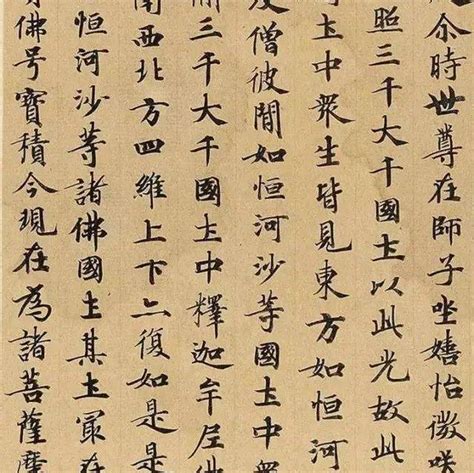 尒時世尊在師子坐嬉怡微咲
照三千大千國土以此光故此
土中衆生皆見東方如恒河
及僧彼間如恒河沙等國土中
三千大千國土中釋迦牟尼佛
南西北方四維上下亦復如是是
恒河沙等諸佛國土其土冣在
佛号寶積今現在為諸菩薩摩